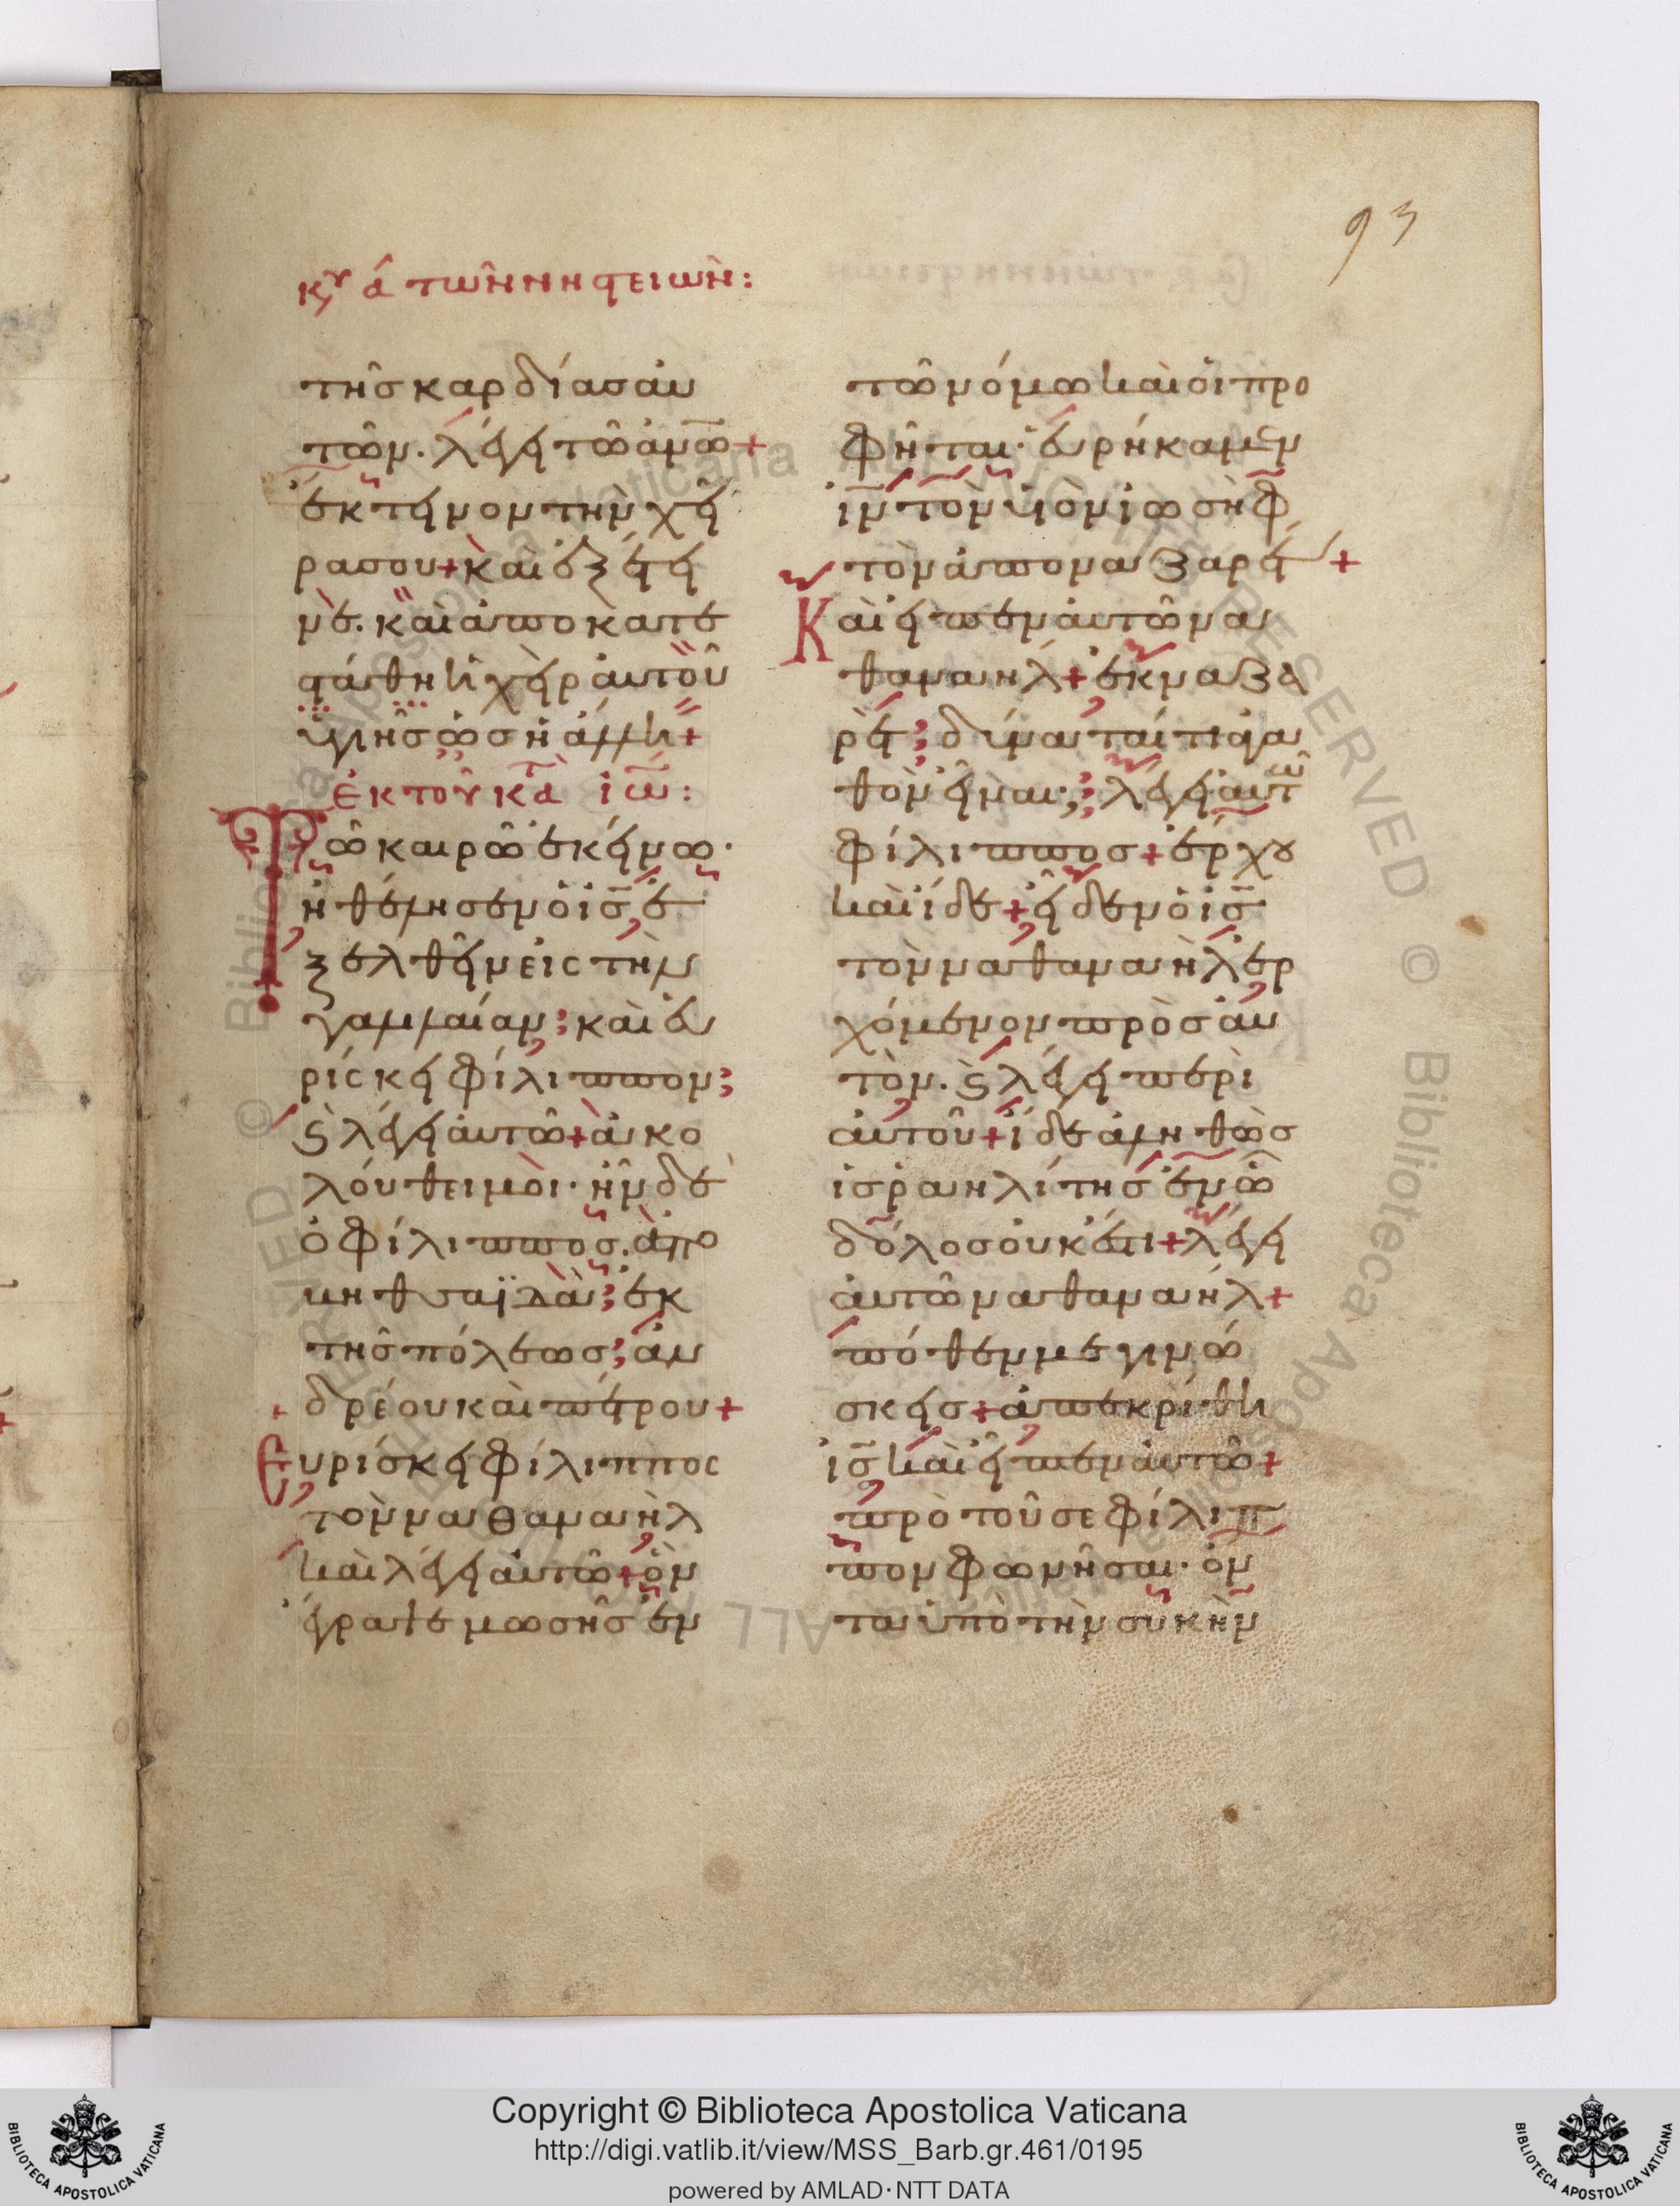 93
κυ α τῶν νηστειῶν:
τῆς καρδίας αὐ
τῶν. λέγει τῶ ἀνω̅+
ἔκτεινον τὴν χεῖ
ρα σου+ καὶ ἐξέτει
νε. καὶ ἀποκατε
στάθη ἡ χεὶρ αὐτοῦ
ὑγιῆς ὡς ἡ ἄλλη+
ἐκ τοῦ κατὰ ἰω̅:
Τῶ καιρῶ ἐκείνω·
ἠθέλησεν ὁ ις̅ ἐ
ξελθεῖν εἰς τὴν
γαλιλαίαν; καὶ εὑ
ρίσκει φίλιππον;
ϛ λέγει αὐτῶ+ ἀκο
λούθει μοι· ἦν δὲ
ὁ φίλιππος. ἀπὸ
βηθσαϊδὰ; ἐκ
τῆς πόλεως; ἀν
δρέου καὶ πέτρου+
Εὑρίσκει φίλιππος
τὸν ναθαναὴλ
καὶ λέγει αὐτῶ+ ὃν
ἔγραψε μωσῆς ἐν
τῶ νόμω καὶ οἱ προ
φῆται· εὑρήκαμεν
ιν̅ τὸν υἱὸν ἰωσὴφ
τὸν ἀπὸ ναζαρέτ+
Καὶ εἶπεν αὐτῶ να
θαναήλ+ ἐκ ναζα
ρὲτ; δύναταί τι ἀγα
θὸν εἶναι; λέγει αὐτῶ
φίλιππος+ ἔρχου
καὶ ἴδε+ εἶδεν ὁ ις̅
τὸν ναθαναὴλ ἐρ
χόμενον πρὸς αὐ
τὸν. ϛ λέγει περὶ
αὐτοῦ+ ἴδε ἀληθῶς
ἰσραηλίτης ἐν ὧ
δόλος οὐκ ἔστι+ λέγει
αὐτῶ ναθαναήλ+
πόθεν με γινώ
σκεις+ ἀπεκρίθη
ις̅ καὶ εἶπεν αὐτῶ+
πρὸ τοῦ σε φίλιπ
πον φωνῆσαι· ὄν
τα ὑπὸ τὴν συκὴν
Copyright © Biblioteca Apostolica Vaticana
http://digi.vatlib.it/view/MSS_Barb.gr.461/0195
powered by AMLAD·NTT DATA